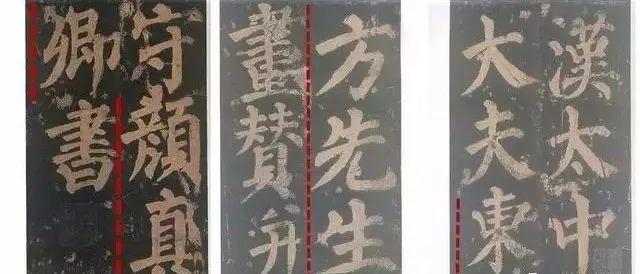 漢太中
大夫東
方先生
畫賛并
守顔真
卿書